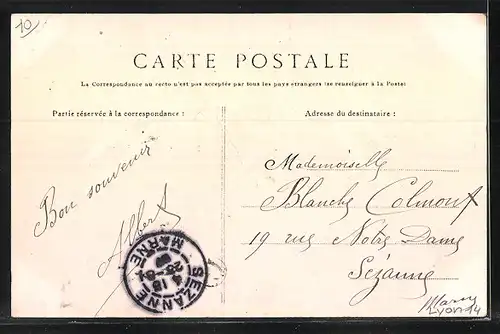 10
CARTE POSTALE
La Correspondance au verso n'est pas acceptée par tous les pays étrangers (se renseigner à la Poste)
Partie réservée à la correspondance :
Adresse du destinataire :
Bon souvenir
Albert
Mademoiselle
Blanche Colmont
19 rue Notre Dame
Sézanne
SEZANNE
MARNE
Marne
Lyon 14